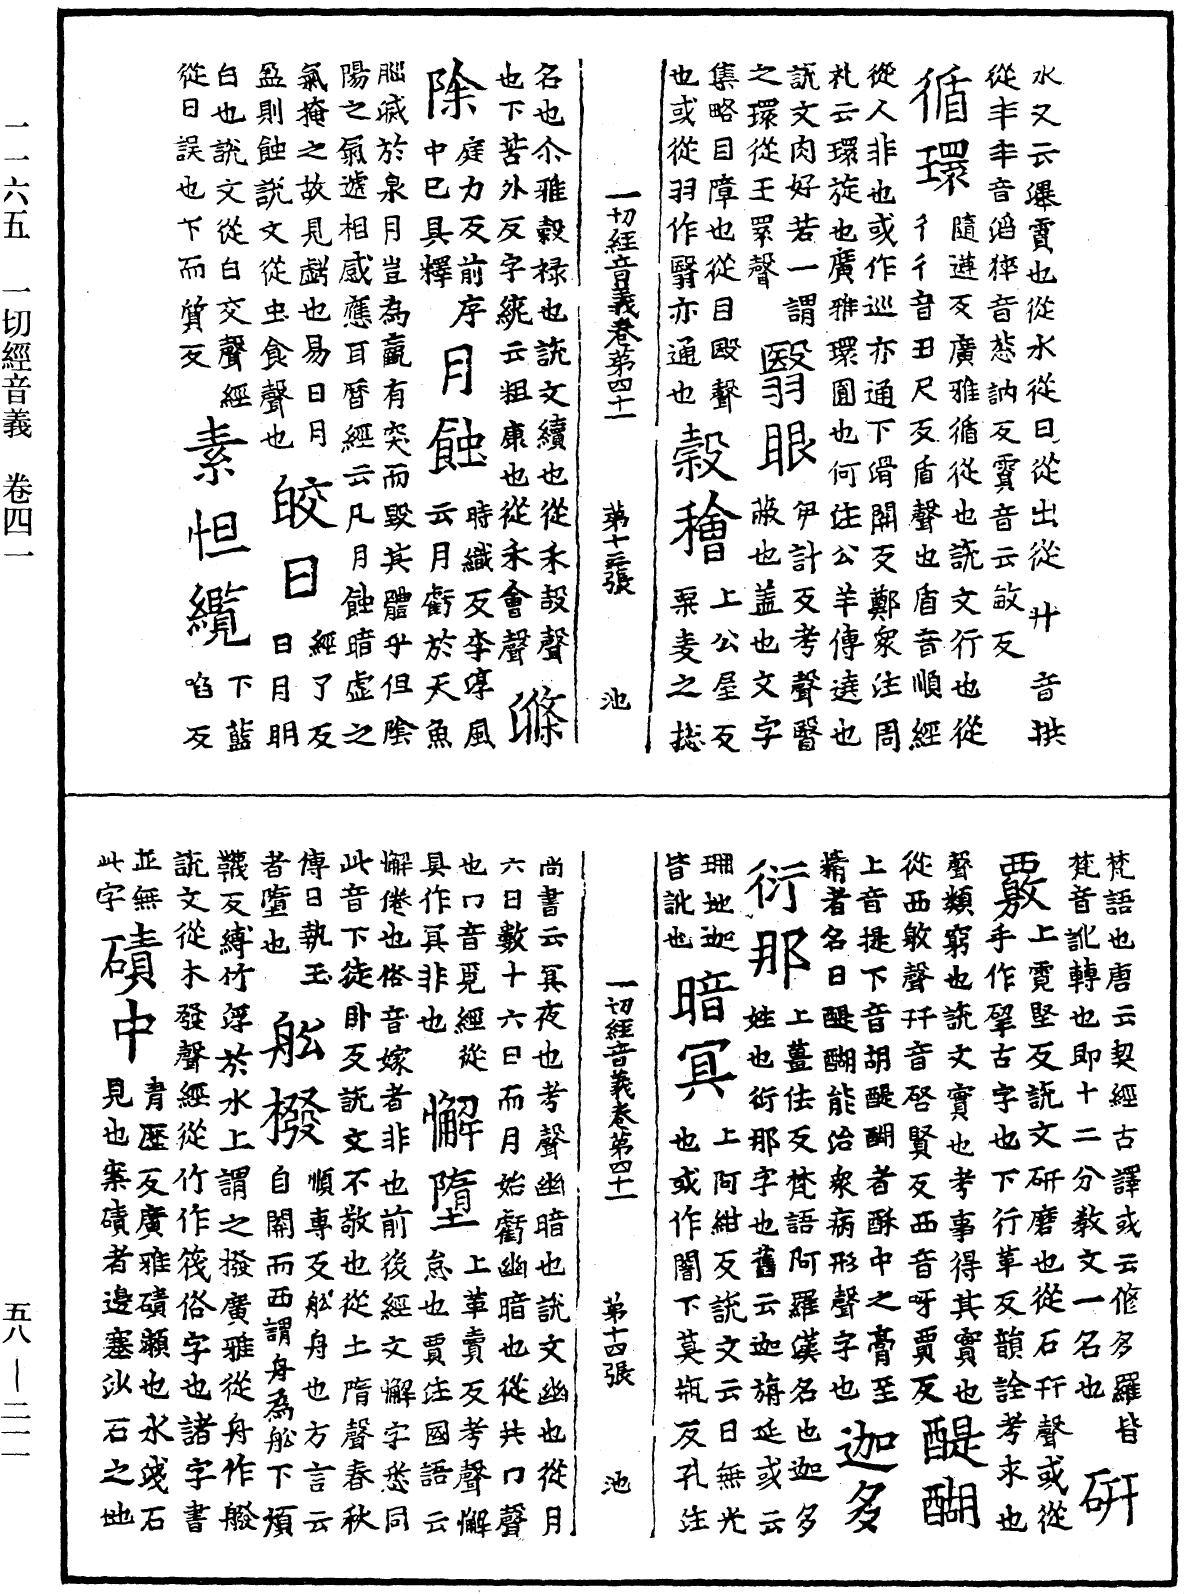 一一六五　一切經音義　卷四一
水又云㬥䨦也從水從日從出從廾音拱
從𠦍𠦍音滔䨦音悲訥反䨦音云敏反
循環隨遵反廣雅循從也說文行也從
彳彳音丑尺反盾聲也盾音順經
從人非也或作巡亦通下滑關反鄭衆注周
礼云環旋也廣雅環圓也何注公羊傳遶也
說文肉好若一謂
之環從王睘聲翳眼伊計反考聲翳
蔽也蓋也文字
集略目障也從目殹聲
也或從羽作翳亦通也穀穭上公屋反
粟麦之揔
一切經音義卷第四十一　第十三張　池
名也尒雅穀禄也說文續也從禾㱿聲
也下苦外反字統云粗康也從禾會聲滁
除庭力反前序
中已具釋月蝕時織反李淳風
云月虧於天魚
𦝩減於泉月豈為贏有突而毀其體乎但陰
陽之氣遞相感應耳曆經云凡月蝕暗虛之
氣掩之故見虧也易日月
盈則蝕說文從虫食聲也皎日經了反
日月明
白也說文從白交聲經
從日誤也下而質反素怛纜下藍
啗反
梵語也唐云契經古譯或云修多羅皆
梵音訛轉也即十二分教文一名也研
覈上霓堅反說文研磨也從石幵聲或從
手作揅古字也下行革反韻詮考求也
聲類窮也說文實也考事得其實也
從襾敫聲幵音啓賢反襾音呀賈反醍醐
上音提下音胡醍醐者酥中之膏至
精者名曰醍醐能治衆病形聲字也迦多
衍那上薑佉反梵語阿羅漢名也迦多
姓也衍那字也舊云迦旃延或云
珊地迦
皆訛也暗冥上阿紺反說文云日無光
也或作闇下莫瓶反孔注
一切經音義卷第四十一　第十四張　池
尚書云冥夜也考聲幽暗也說文幽也從月
六日數十六日而月始虧幽暗也從共冂聲
也冂音覓經從
具作㝠非也懈墮上革賣反考聲懈
怠也賈注國語云
懈倦也俗音嫁者非也前後經文懈字悉同
此音下徒臥反說文不敬也從土隋聲春秋
傳曰執玉
者墮也舩橃順專反舩舟也方言云
自關而西謂舟為舩下煩
韈反縛竹浮於水上謂之橃廣雅從舟作艐
說文從木發聲經從竹作筏俗字也諸字書
並無
此字磧中青歷反廣雅磧瀨也水淺石
見也案磧者邊塞沙石之地
五八—二一一